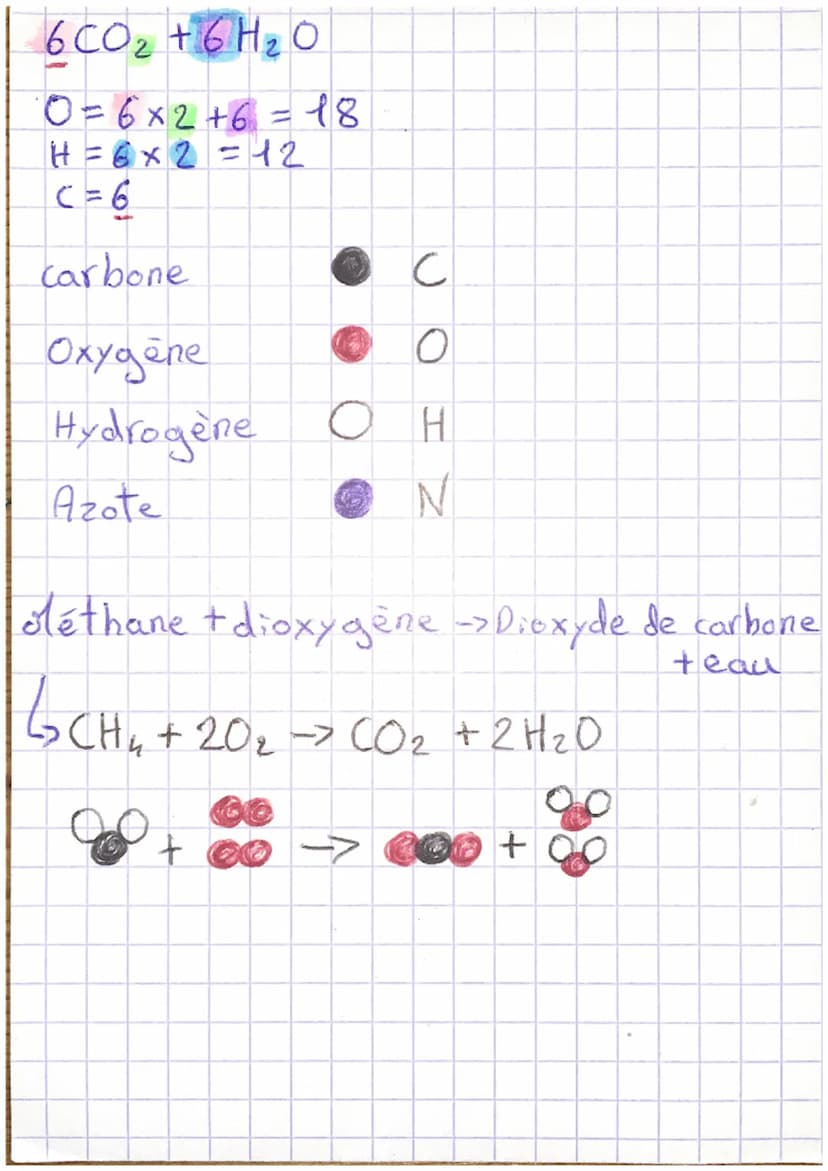 6CO₂ + 6H₂O
O = 6 x 2 + 6 = 18
H = 6 x 2 = 12
C = 6
carbone C
Oxygène O
Hydrogène H
Azote N
Méthane + dioxygène -> Dioxyde de carbone
+ eau
CH₄ + 2O₂ -> CO₂ + 2H₂O
+ -> +